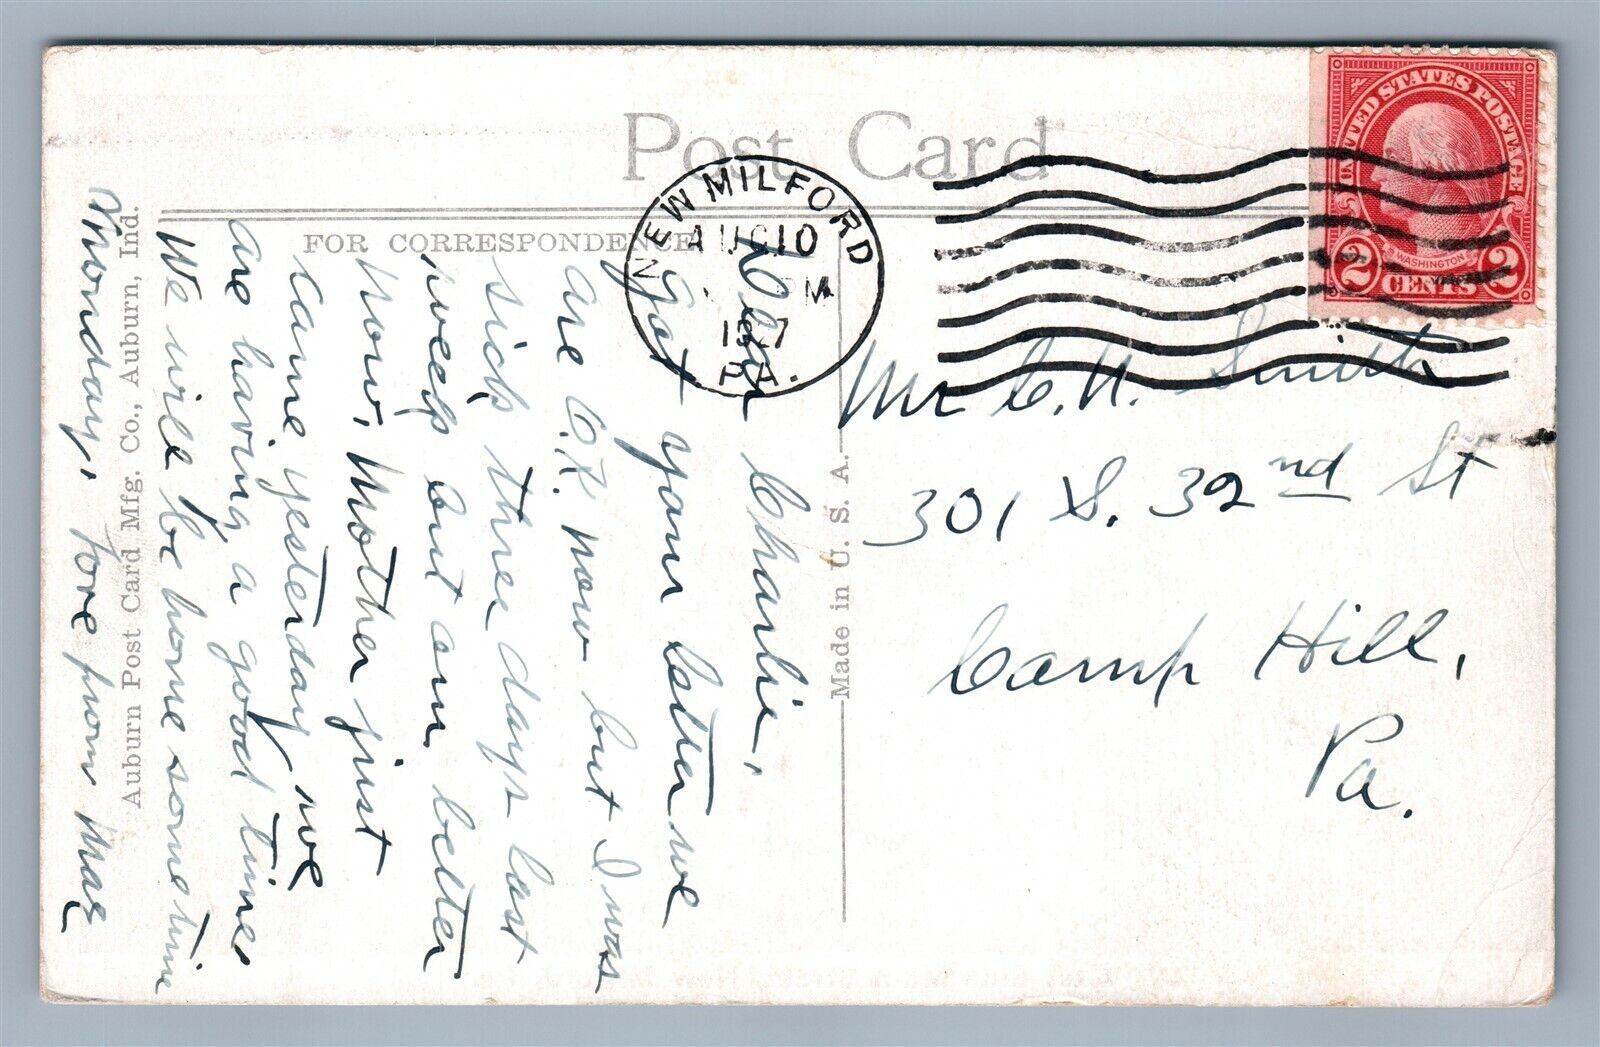 Post Card
FOR CORRESPONDENCE
NEW MILFORD
AUG 10
PM
1927
PA.
UNITED STATES POSTAGE
WASHINGTON
2 CENTS 2
Mr C. N. Smith
301 S. 32nd St
Camp Hill,
Pa.
Dear Charlie,
Got your letter we
are O.K. now but I was
sick three days last
week but am better
now. Mother just
came yesterday we
are having a good time
We will be home sometime
Monday. Love from Mae
Made in U. S. A.
Auburn Post Card Mfg. Co., Auburn, Ind.